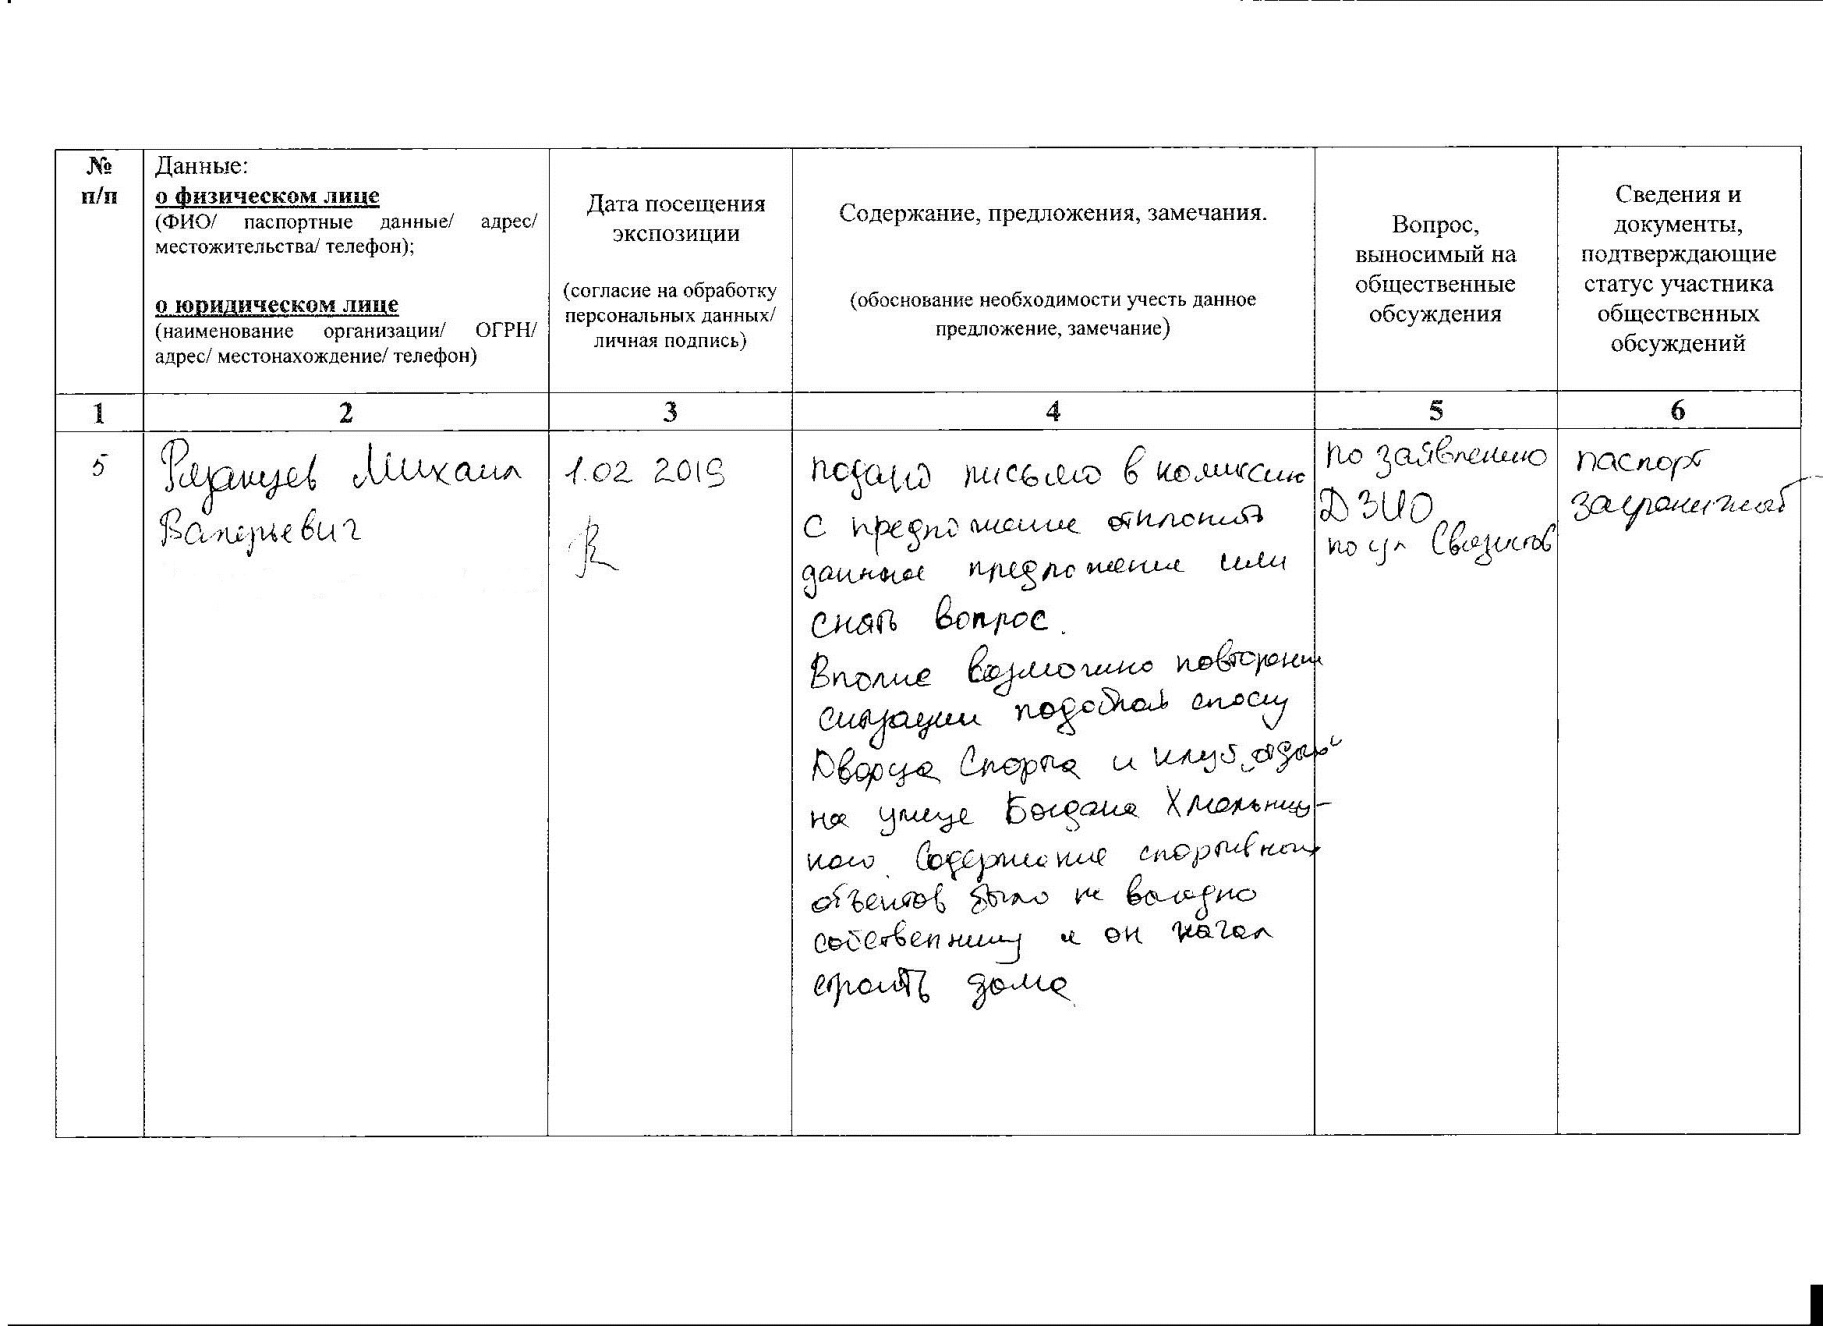 №
п/п
Данные:
о физическом лице
(ФИО/ паспортные данные/ адрес/
местожительства/ телефон);
о юридическом лице
(наименование организации/ ОГРН/
адрес/ местонахождение/ телефон)
Дата посещения
экспозиции
(согласие на обработку
персональных данных/
личная подпись)
Содержание, предложения, замечания.
(обоснование необходимости учесть данное
предложение, замечание)
Вопрос,
выносимый на
общественные
обсуждения
Сведения и
документы,
подтверждающие
статус участника
общественных
обсуждений
1
2
3
4
5
6
5
Рязанцев Михаил
Валерьевич
1.02 2019
подано письмо в комиссию
с предложение отклонить
данное предложение или
снять вопрос.
Вполне возможно повторение
ситуации подобной сносу
Дворца Спорта и клуб
на улице Богдана Хмельниц-
кого. Содержание спортивных
объектов было не выгодно
собственнику и он начал
строить дома
по заявлению
ДЗИО
по ул Связистов
паспорт
заграничный